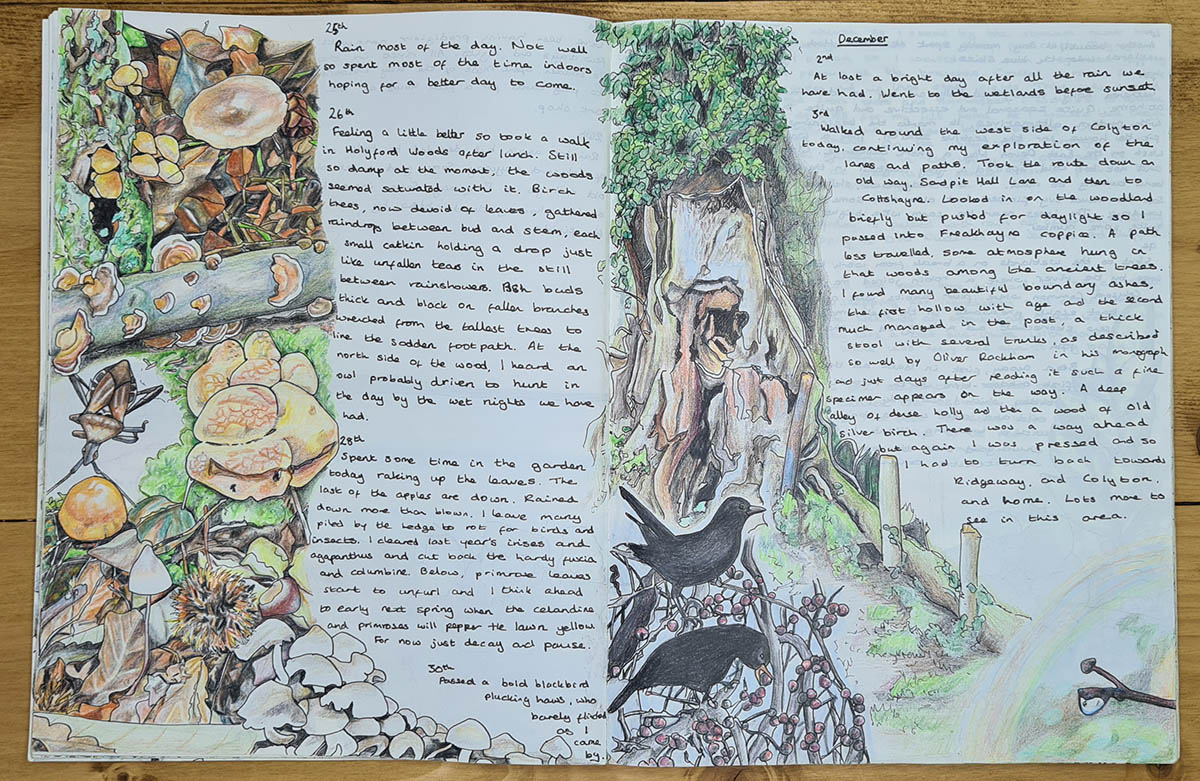 25th
Rain most of the day. Not well
so spent most of the time indoors
hoping for a better day to come.
26th
Feeling a little better so took a walk
in Holyford Woods after lunch. Still
so damp at the moment, the woods
seemed saturated with it. Birch
trees, now devoid of leaves, gathered
raindrop between bud and stem, each
small catkin holding a drop just
like unfallen tears in the still
between rainshowers. Ash buds
thick and black on fallen branches
wrenched from the tallest trees to
line the sodden footpath. At the
north side of the wood, I heard an
owl probably driven to hunt in
the day by the wet nights we have
had.
28th
Spent some time in the garden
today raking up the leaves. The
last of the apples are down. Rained
down more than blown. I leave many
piled by the hedge to rot for birds and
insects. I cleared last year's irises and
agapanthus and cut back the hardy fuscia
and columbine. Below, primrose leaves
start to unfurl and I think ahead
to early next spring when the celandine
and primroses will pepper the lawn yellow
For now just decay and pause.
30th
Passed a bold blackbird
plucking haws, who
barely flinched
as I
came
by.
December
2nd
At last a bright day after all the rain we
have had. Went to the wetlands before sunset
3rd
Walked around the west side of Colyton
today, continuing my exploration of the
lanes and paths. Took the route down an
old way, Sandpit Hall Lane and then to
Cottshayne. Looked in on the woodland
briefly but pushed for daylight so I
passed into Freakhayne coppice. A path
less travelled, some atmosphere hung in
that woods among the ancient trees.
I found many beautiful boundary ashes,
the first hollow with age and the second
much managed in the past, a thick
stool with several trunks, as described
so well by Oliver Rackham in his monograph
and just days after reading it such a fine
specimen appears on the way. A deep
alley of dense holly and then a wood of old
silver birch. There was a way ahead
but again I was pressed and so
I had to turn back towards
Ridgeway, and Colyton,
and home. Lots more to
see in this area.